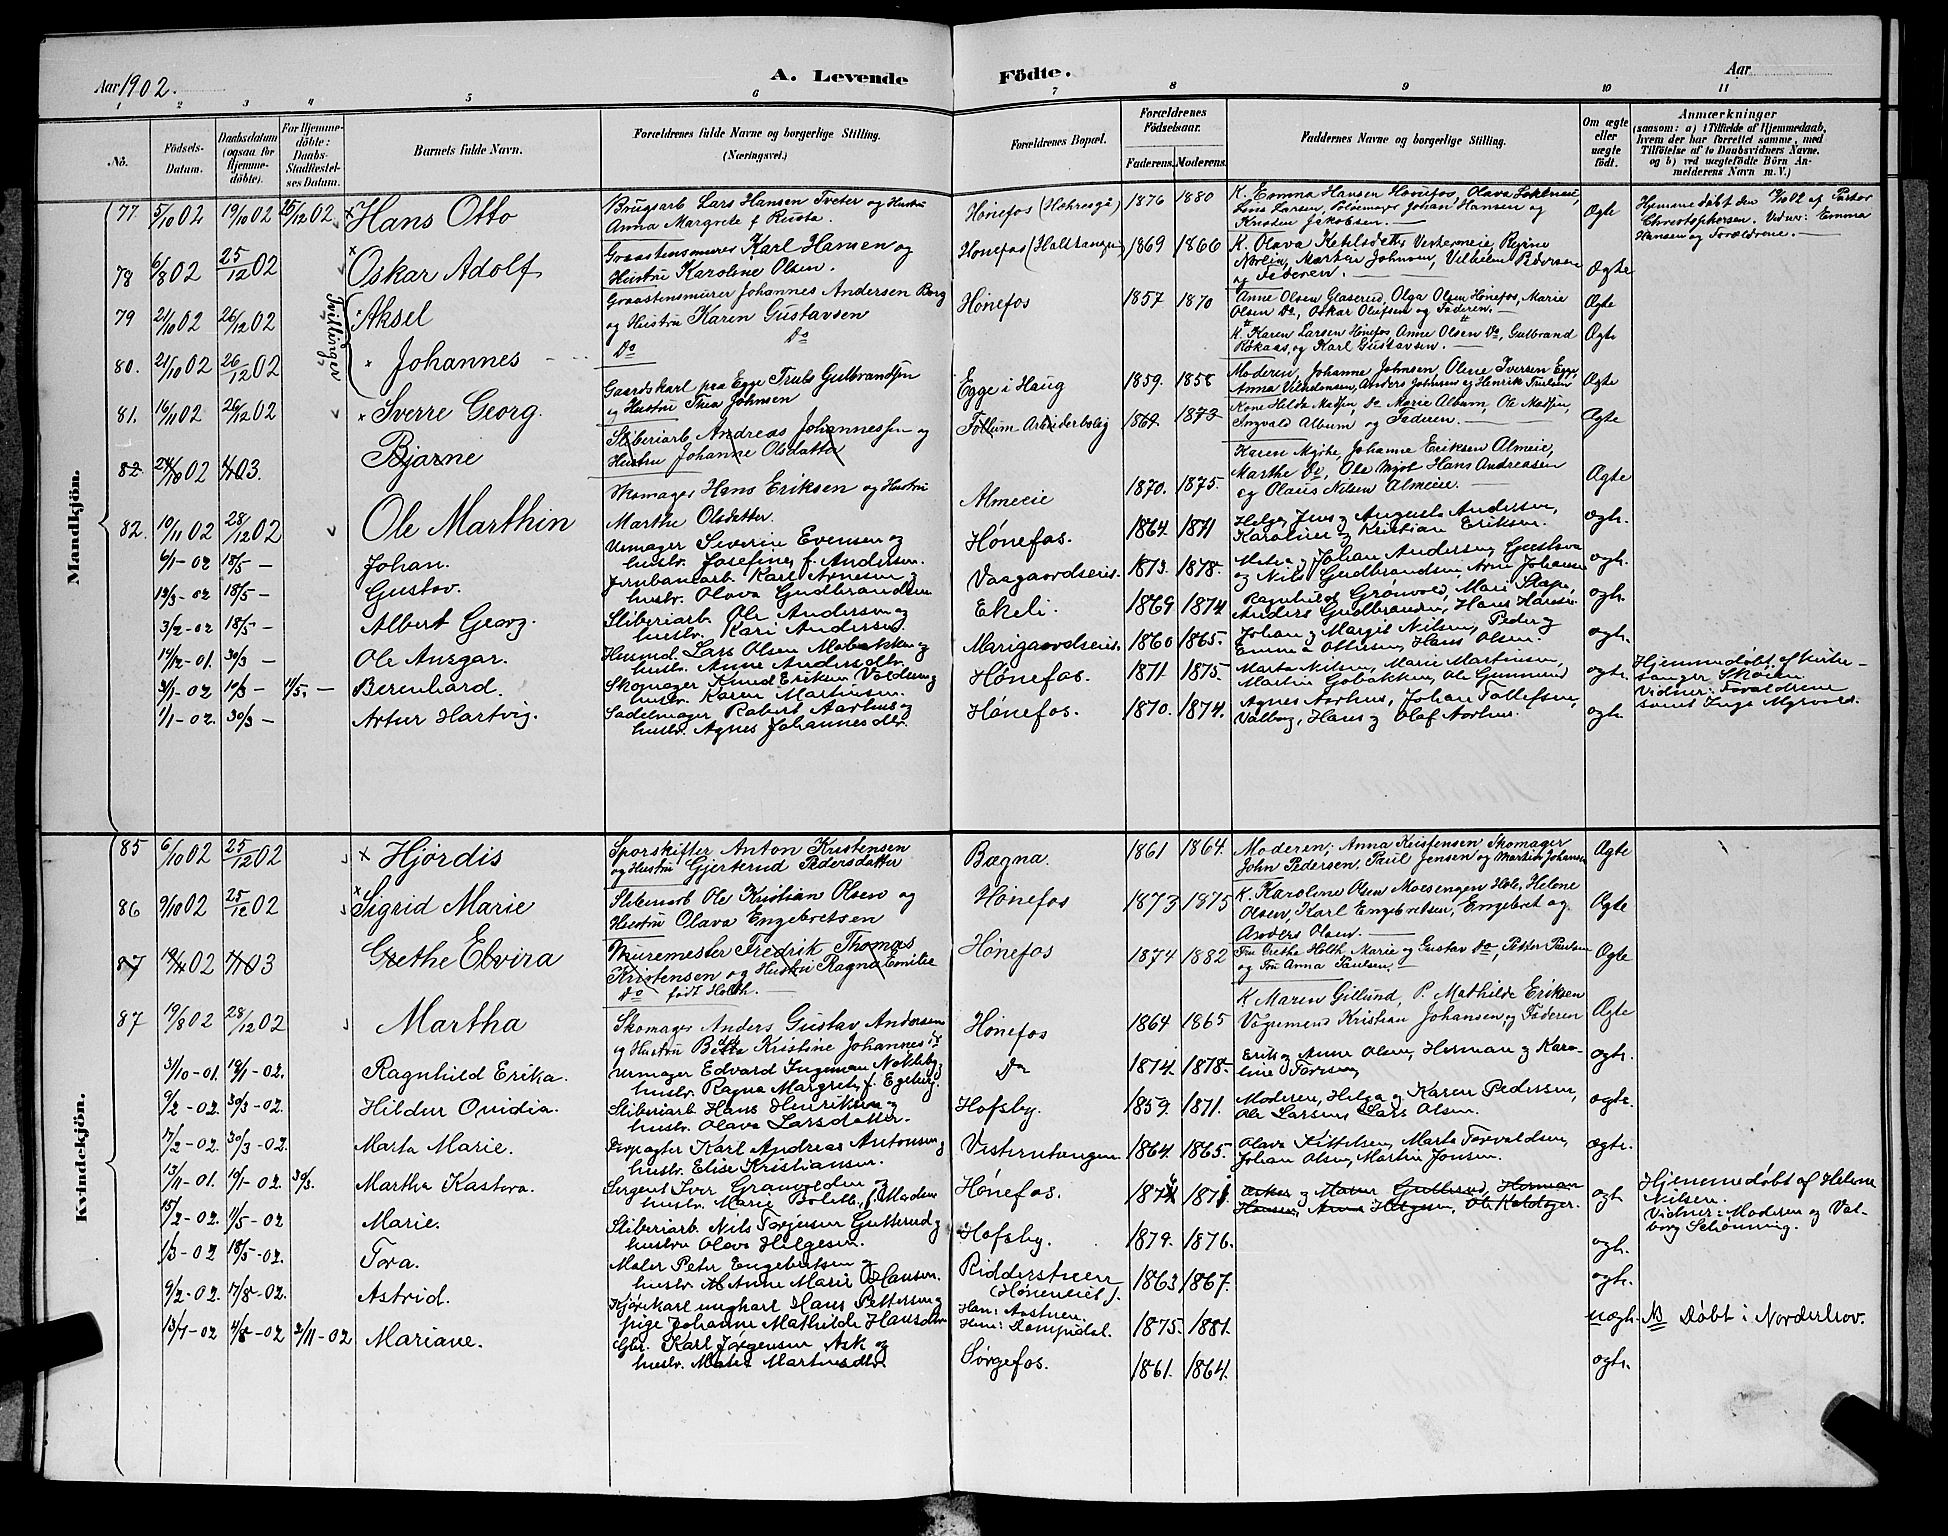 Aar 1902.
A. Levende Födte.
Aar
1 2 3 4 5 6 7 8 9 10 11
No.
Födsels-Datum.
Daabsdatum (ogsaa for Hjemme-döbte).
For Hjemme-döbte: Daabs-Stadfæstel-ses Datum.
Barnets fulde Navn.
Forældrenes fulde Navne og borgerlige Stilling. (Næringsvei.)
Forældrenes Bopæl.
Forældrenes Födselsaar.
Faderens. Moderens.
Faddernes Navne og borgerlige Stilling.
Om ægte eller uægte födt.
Anmærkninger
(saasom: a) i Tilfælde af Hjemmedaab, hvem der har forrettet samme, med Tilföielse af to Daabsvidners Navne, og b) ved uægtefödte Börn An-melderens Navn m. V.)
Mandkjön.
77. 5/10 02 19/10 02 26/12 02 Hans Otto
Brugsarb Lars Hansen Tveter og Hustru
Anna Margrete f Rusta.
Hønefos 1876 1880
K. Emma Hansen Hønefos, Olava
Lena Larsen, Johan Hansen og
Jakobsen.
Ægte
Hjemmedøbt den 19/10 02 af Pastor
Christophersen. Vidner: Emma
Hansen og Forældrene.
78 6/8 02 25/12 02 Oskar Adolf
Graastensmurer Karl Hansen og
Hustru Karoline Olsen.
Hønefos 1869 1866
K. Olava
Martin Johnsen, Vilhelm Pedersen
og Faderen.
Ægte
Tvillinger
79 21/10 02 26/12 02 Aksel
Graastensmurer Johannes Andersen Borg
og Hustru Karen Gustavsen
Hønefos 1857 1870
Anne Olsen Glaserud, Olga Olsen Hønefos, Marie
Olsen Do, Oskar Olufsen og Faderen.
Ægte
80. 21/10 02 26/12 02 Johannes
Do Do
K. Karen Larsen Hønefos, Anne Olsen Do, Gulbrand
og Karl Gustavsen.
Ægte
81. 16/11 02 26/12 02 Sverre Georg.
Gaardskarl paa Egge Truls Gulbrandsen
og Hustru Thea Johnsen
Egge i Haug 1859. 1858
Moderen, Johanne Johnsen, Oline Iversen Egge,
Anders Johnsen og Henrik
Ægte
82 02 4/1 03. Bjarne
Sliberiarb Andreas Johannessen og
Hustru Johanne Olsdatter
Follum Arbeiderbolig 1873
Kone Hilda Madsen, Do Marie Album, Ole Madsen,
Ingvald Album og Faderen.
Ægte
82. 10/11 02 28/12 02 Ole Marthin
Skomager Hans Eriksen og Hustru
Marthe Olsdatter.
Almeeie 1870. 1875.
Karen Johanne Eriksen Almeie,
Marthe Do, Ole Hans Andreasen
og Olaus Nilsen Almeie.
Ægte
6/1-02 18/5 - Johan.
Urmager Severin Evensen og
hustr. Josefine, f. Andersen.
Hønefos. 1864. 1871
Helga, Jens og Augusta Andersen,
Karoline og Kristian Eriksen.
ægte.
13/3-02 18/5 - Gustav.
Jernbanearb. Karl Arnesen og
hustr. Olava Gudbrandsen
Vaagaardseie. 1873. 1878.
Johan Andersen, Gustava
og Nils Gudbrandsen, Arne Johansen
ægte.
3/2-02 18/5 - Albert Georg.
Sliberiarb. Ole Andersen og
hustr. Kari Andersen
Ekeli. 1869 1874
Ragnhild Grønvold, Mari
Anders Gudbrandsen, Hans
ægte.
14/12-01. 30/3 - Ole Ansgar.
Husmd. Lars Olsen og
hustr. Anne Andersdtr.
Marigaardseie. 1860 1865.
Johan og Margit Nilsen, Peder og
Emma Ottersen, Hans Olsen.
ægte.
31/1-02 19/3 - 11/5 - Bernhard.
Skomager Knud Eriksen og
hustr. Karen Martinsen.
Hønefos. 1871. 1875.
Marta Nilsen, Marie Martinsen,
Martin Ole
ægte.
Hjemmedøbt af Kirke-
sanger Skøien
Vidner: Forældrene
samt Inga Myrvold.
1/1-02. 30/3 - Artur Hartvig.
Sadelmager Robert Aarhus og
hustr. Agnes Johannesdtr.
Hønefos. 1870. 1874.
Agnes Aarhus, Johan Tollefsen,
Valborg, Hans og Olaf Aarhus.
ægte.
Kvindekjön.
85 6/10 02 25/12 02 Hjørdis
Sporskifter Anton Kristensen
og Hustru Gjertrud Pedersdatter
Bægna. 1861 1864.
Moderen, Anna Kristensen Skomager
John Pedersen, Paul Jensen og Martin Johansen
Ægte
86 9/10 02 25/12 02 Sigrid Marie
Ole Kristian Olsen og
Hustru Olava Engebretsen
Hønefos 1873 1875
K. Karoline Olsen Moesengen Hole, Helene
Olsen, Karl Engebretsen, Engebret og
Anders Olsen.
Ægte
87 02 4/1 03 Grethe Elvira
Muremester Fredrik Thomas
Kristensen og Hustru Ragna Emilie
Do født Holth.
Hønefos 1874 1882
Fru Grethe Holth, Marie og Gustav Do, Petter Paulsen
og Fru Anna Paulsen.
Ægte
87 19/8 02 28/12 02 Martha
Skomager Anders Gustav Andersen
og Hustru Kristine
Hønefos 1864 1865
K Maren Gillund, P. Mathilde Eriksen
Kristian Johansen, og Faderen
Ægte
31/10-01. 19/1-02. Ragnhild Erika.
Urmager Edvard Ingeman og
hustr. Ragna Margrete, f. Egeberg.
Do 1874. 1878.
Erik og Anne Olsen, Herman og Karo-
line
ægte.
9/2-02. 30/3-02. Hildur Ovidia.
Sliberiarb. Hans Henriksen og
hustr. Olava Larsdatter.
Hofsby. 1859. 1871.
Moderen, Helga og Karen Pedersen,
Ole Larsen, Lars Olsen.
ægte.
17/2-02. 30/3-02. Marta Marie.
Karl Andreas Antonsen og
hustr. Elise Kristiansen.
1864. 1865.
Olava Kittelsen, Marta Torvaldsen,
Johan Olsen, Martin Jonsen.
ægte.
13/11-01. 19/1-02. 30/3. Martha Kastora.
Sergent Iver og
hustr. Marie
Hønefos. 1871.
og Maren Gullerud, Herman
Hansen, Anne Helgesen, Ole
ægte.
Hjemmedøbt af Helene
Nilsen.
Vidner: Moderen og Val-
borg Schønning.
15/2-02. 11/5-02 Marie.
Sliberiarb. Nils Torjersen Gutterud og
hustru Olava Helgesen.
Hofsby. 1879. 1876.
ægte.
1/3-02 18/5-02. Tora.
Maler Peter Engebretsen og
hustr. Anne Marie Hansen.
(Hønenseie). 1863 1867.
ægte.
9/2-02. 17/8-02. Astrid.
Kjørekarl ungkarl Hans Pettersen og
pige Johanne Mathilde Hansdtr
Han:
Hun: 1875. 1881.
uægte.
NB Døbt i Norderhov.
13/7-02 4/8-02 2/11-02 Mariane.
Gbr. Karl Jørgensen Ask og
hustr. Martinsdtr.
Sørgefos. 1861. 1864.
ægte.